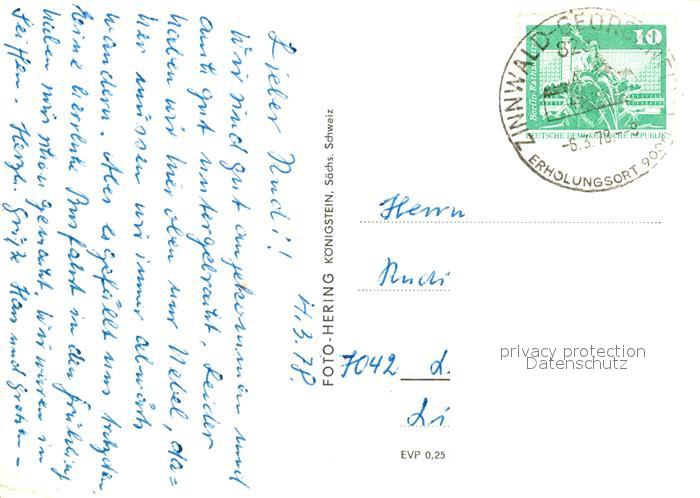 14.3.78.
Lieber Rudi!
Wir sind gut angekommen und
auch gut untergebracht. Leider
haben wir hier oben nur Nebel, da=
her müssen wir immer abwärts
wandern. Aber es gefällt uns trotzdem.
Eine herrliche Busfahrt in den Frühling
haben wir schon gemacht. Wir waren in
Seiffen. Herzl. Grüße Han und Gretchen –
FOTO-HERING KÖNIGSTEIN, Sächs. Schweiz
ZINNWALD-GEORG
82
-6.3.78
ERHOLUNGSORT 900
10
Berlin-Rathaus
DEUTSCHE DEMOKRATISCHE REPUBLIK
Herrn
Rudi
7042 L.
Li
privacy protection
Datenschutz
EVP 0,25